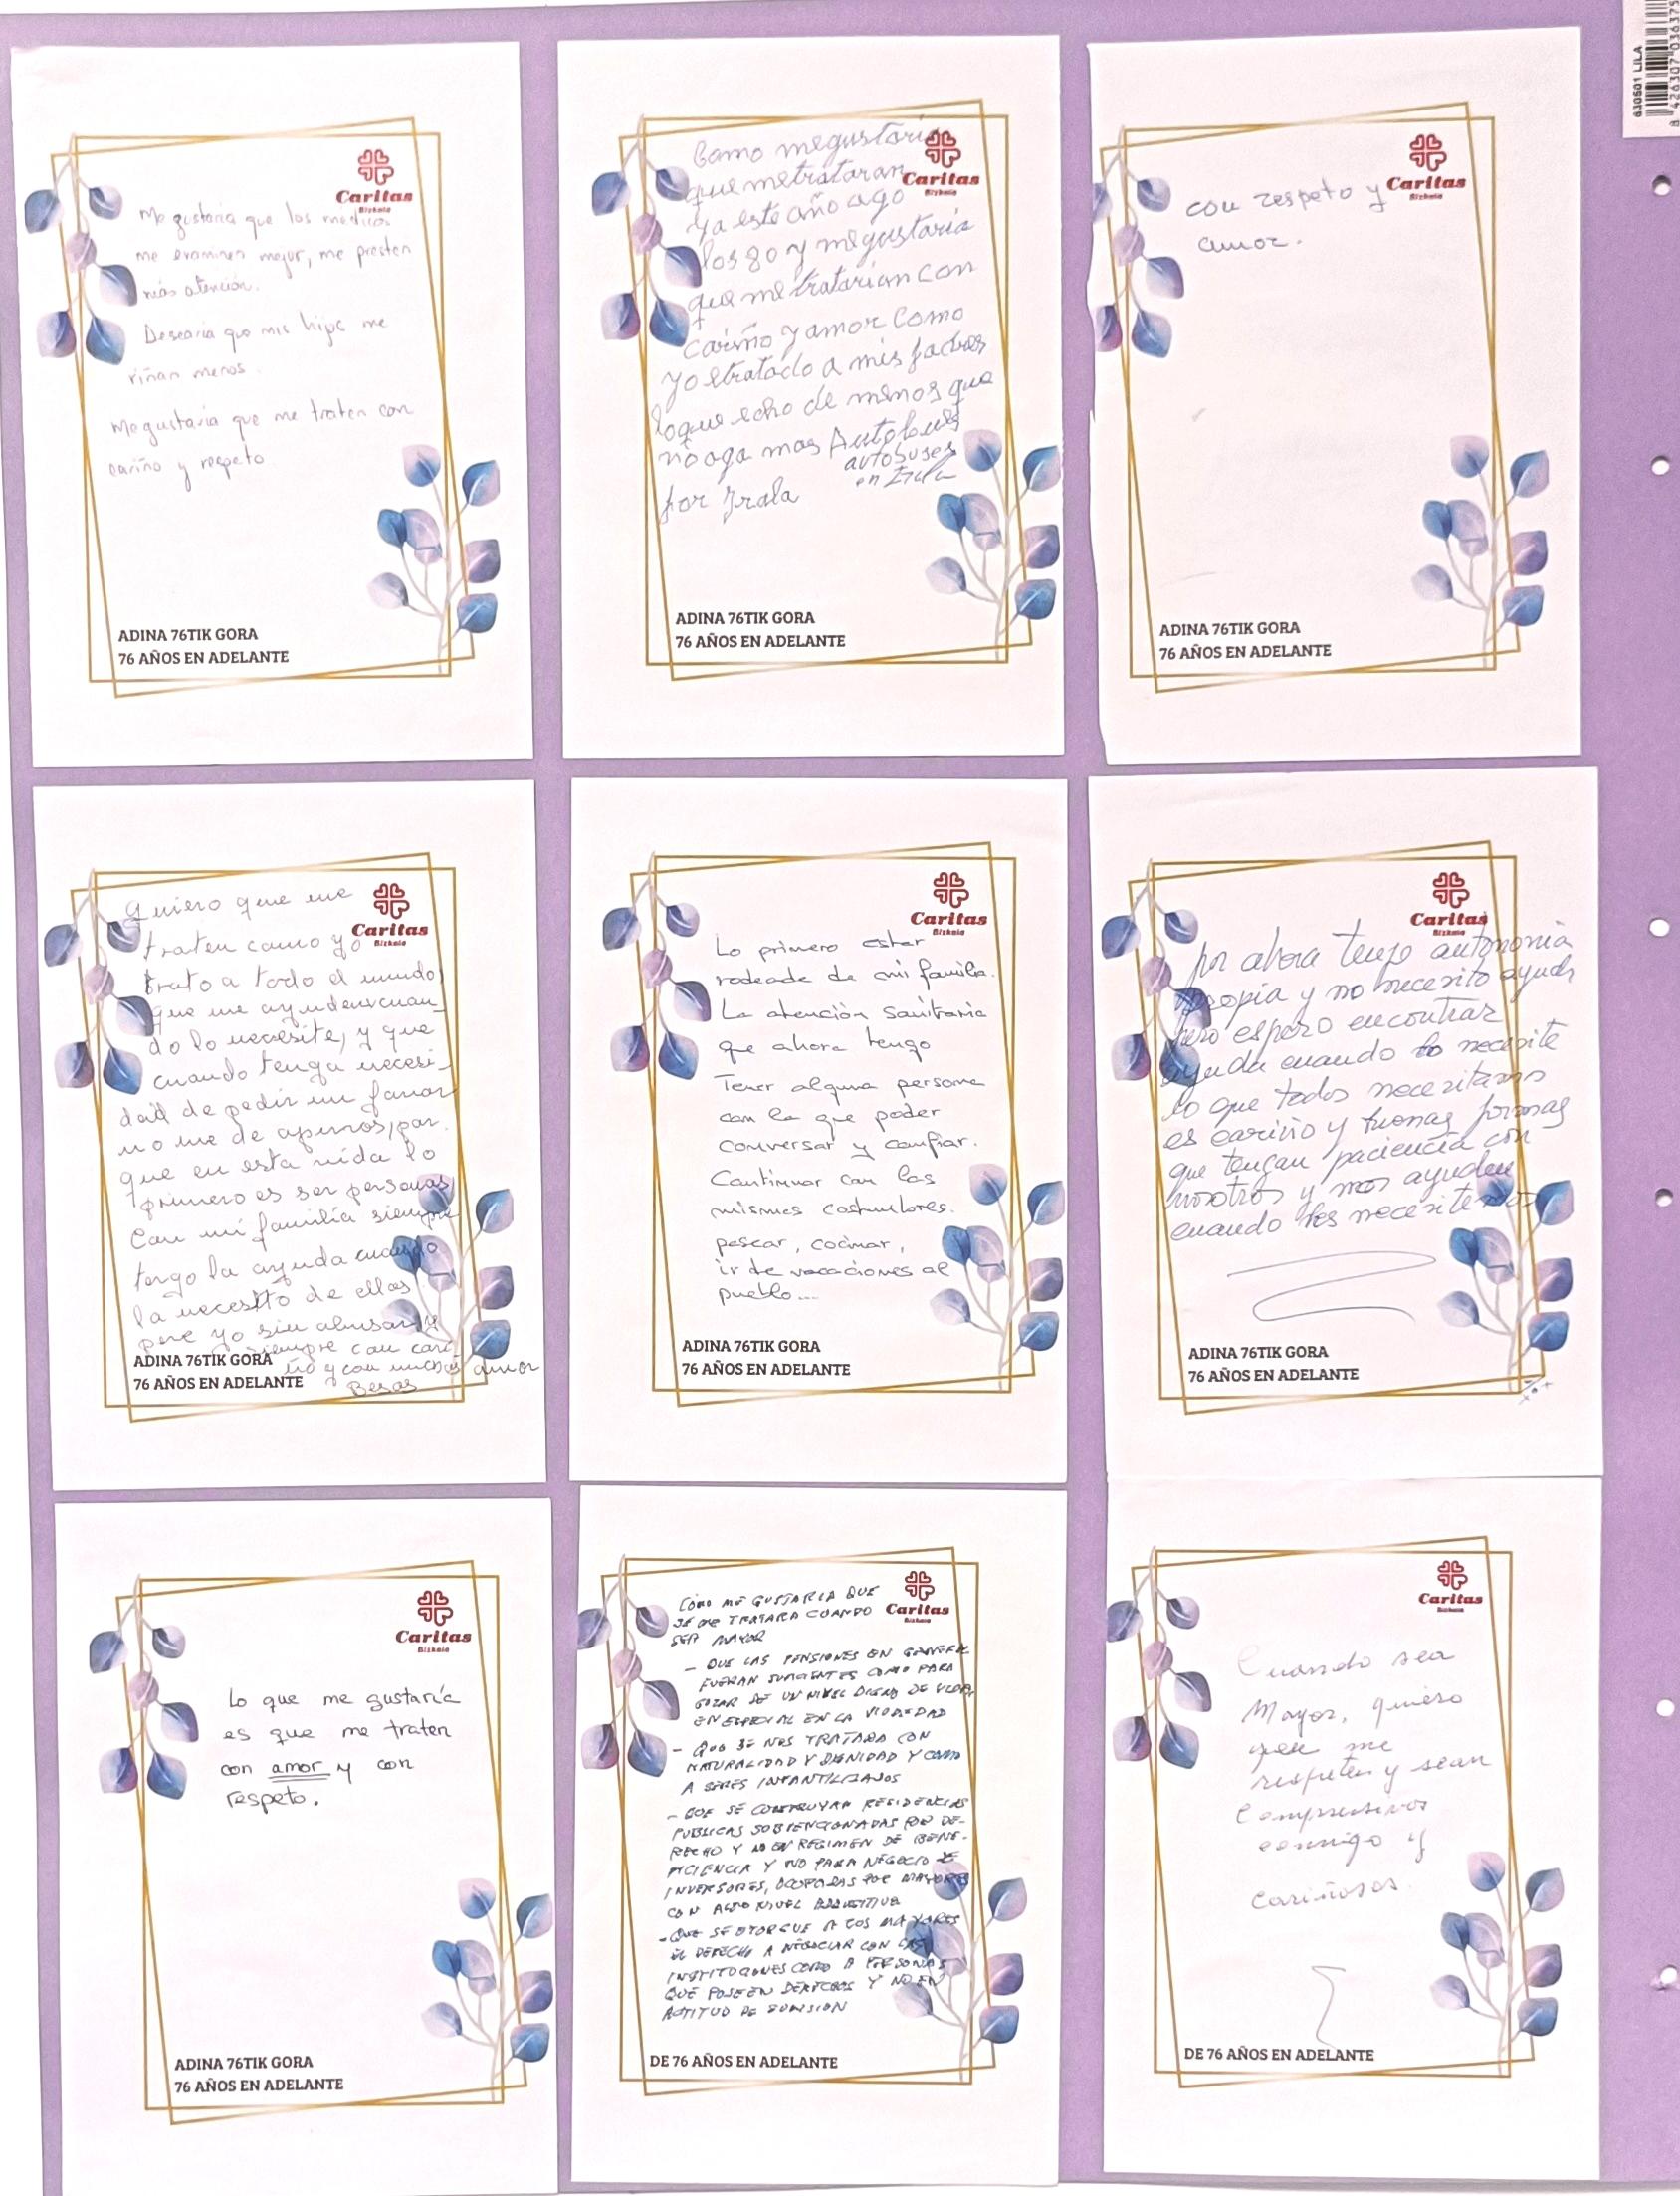 630501 LILA
8 426307 036375
Caritas
Bizkaia
Me gustaria que los medicos
me examinen mejor, me presten
más atención.
Desearia que mis hijos me
riñan menos.
Me gustaria que me traten con
cariño y respeto
ADINA 76TIK GORA
76 AÑOS EN ADELANTE
Como megustaria
que metrataran
Caritas
Bizkaia
ya este año ago
los 80 y megustaria
que me tratarian con
cariño y amor como
yo etratado a mis padres
loque echo de menos que
no aga mas Autobuses
autobuses
en Irala
por Irala
ADINA 76TIK GORA
76 AÑOS EN ADELANTE
Caritas
Bizkaia
con respeto y
amor.
ADINA 76TIK GORA
76 AÑOS EN ADELANTE
Quiero que me
Caritas
Bizkaia
traten como yo
trato a todo el mundo
que me ayuden cuan_
do lo necesite, y que
cuando tenga necesi_
dad de pedir un favor
no me de apuros, por.
que en esta vida lo
primero es ser personas
Con mi familia siempre
tengo la ayuda cuando
la necesito de ellas
pere yo sin abusar y
siempre con cari
ño y con mucho amor
Besos
ADINA 76TIK GORA
76 AÑOS EN ADELANTE
Caritas
Bizkaia
Lo primero estar
rodeade de mi familia.
La atención sanitaria
que ahora tengo
Tener alguna persona
con la que poder
conversar y confiar.
Continuar con las
mismas costumbres.
pasear, cocinar,
ir de vacaciones al
pueblo...
ADINA 76TIK GORA
76 AÑOS EN ADELANTE
Caritas
Bizkaia
por ahora tengo autonomia
propia y no necesito ayuda
pero espero encontrar
ayuda cuando lo necesite
lo que todos necesitamos
es cariño y buenas formas
que tengan paciencia con
nosotros y nos ayuden
cuando los necesitemos
ADINA 76TIK GORA
76 AÑOS EN ADELANTE
Caritas
Bizkaia
Lo que me gustaría
es que me traten
con amor y con
respeto.
ADINA 76TIK GORA
76 AÑOS EN ADELANTE
COMO ME GUSTARIA QUE
SE ME TRATARA CUANDO
Caritas
Bizkaia
SER MAYOR
- QUE LAS PENSIONES EN GENERAL
FUERAN SUFICIENTES COMO PARA
GOZAR DE UN NIVEL DIGNO DE VIDA
EN ESPECIAL EN LA VIUDEDAD
- QUE SE NOS TRATARA CON
NATURALIDAD Y DIGNIDAD Y COMO
A SERES INFANTILIZADOS
- QUE SE CONSTRUYAN RESIDENCIAS
PUBLICAS SOBVENCIONADAS POR DE-
RECHO Y NO EN REGIMEN DE BENE-
FICIENCIA Y NO PARA NEGOCIO DE
INVERSORES, OCUPADAS POR MAYORES
CON ALTO NIVEL ADQUISITIVO
- QUE SE OTORGUE A LOS MAYORES
EL DERECHO A NEGOCIAR CON LAS
INSTITUCIONES COMO A PERSONAS
QUE POSEEN DERECHOS Y NO EN
ACTITUD DE SUMISION
DE 76 AÑOS EN ADELANTE
Caritas
Bizkaia
Cuando sea
Mayor, quiero
que me
respeten y sean
Comprensivos
conmigo y
cariñosos.
DE 76 AÑOS EN ADELANTE